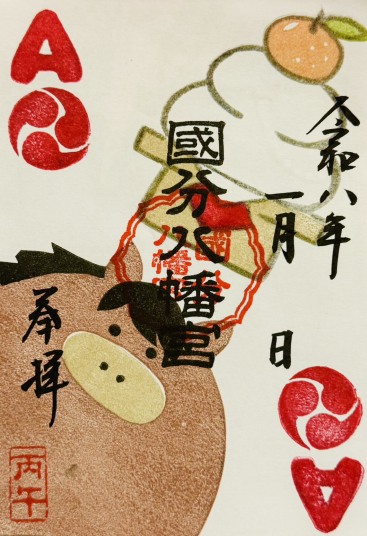 令和八年
一月 日
國分八幡宮
國分
八幡
奉拝
丙午
A
A